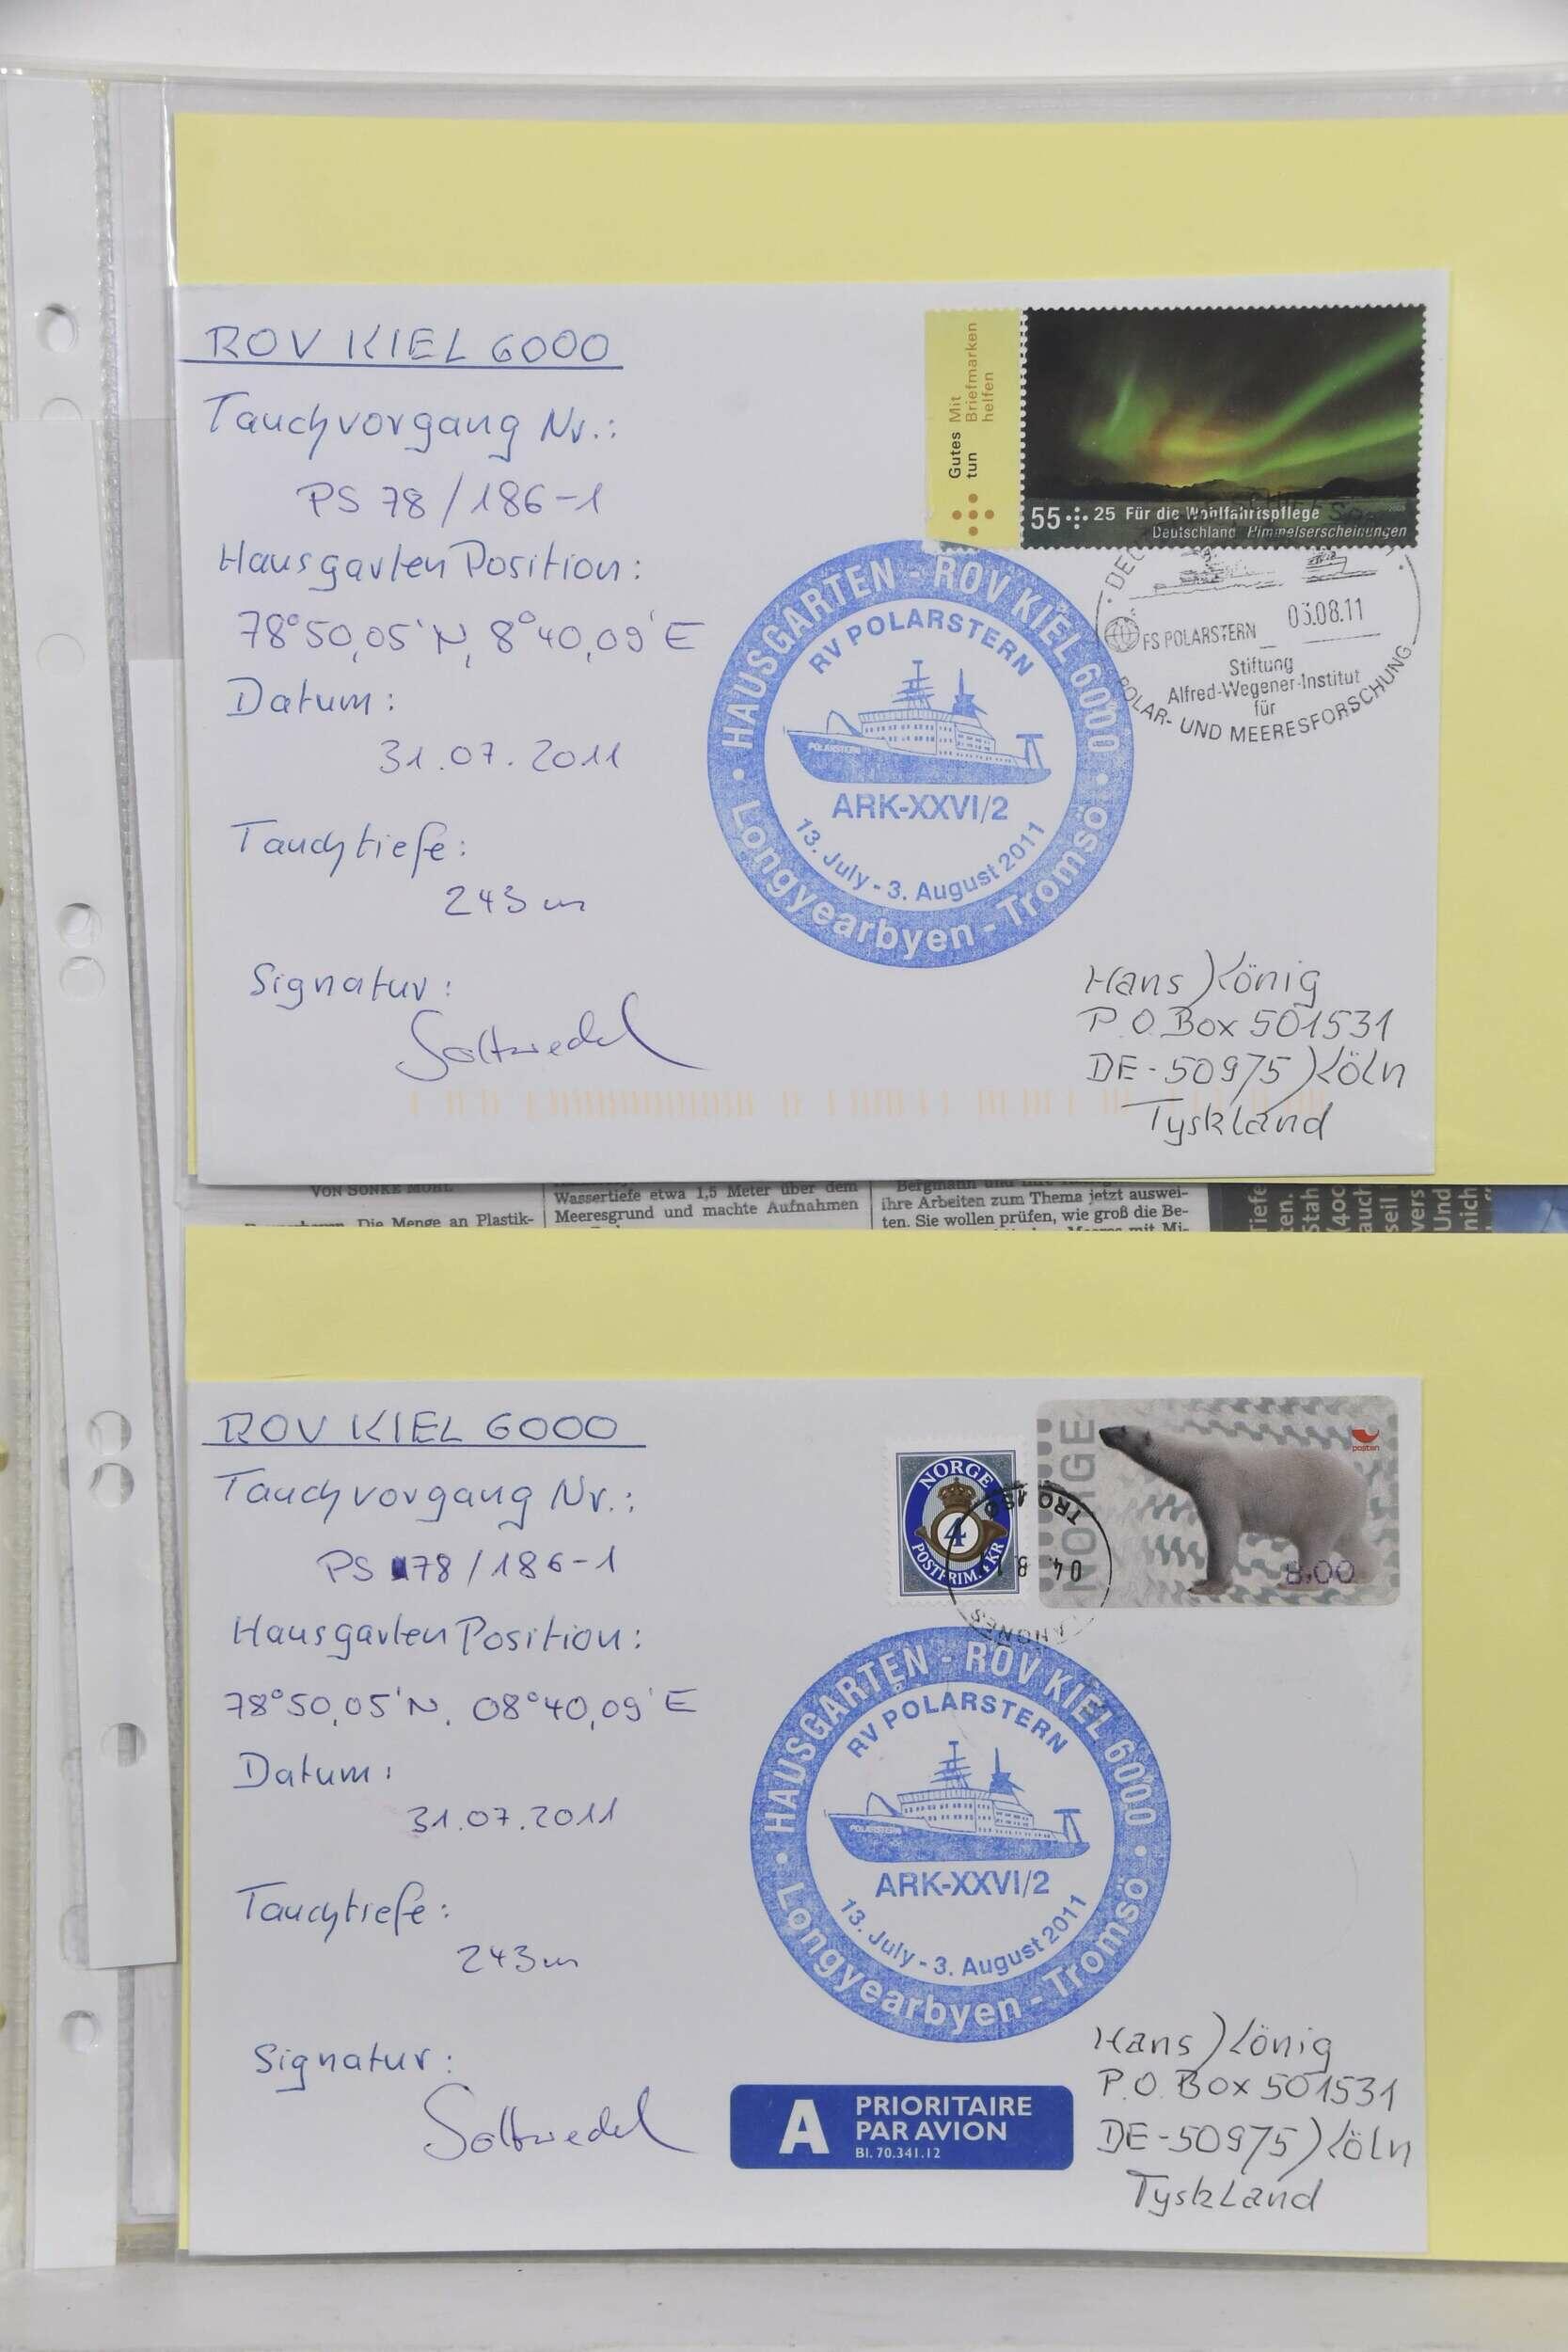 ROV KIEL 6000
Tauchvorgang Nr.:
PS 78/186-1
Hausgarten Position:
78°50,05'N, 8°40,09'E
Datum:
31.07.2011
Tauchtiefe:
243m
Signatur:
Soltwedel
Gutes tun
Mit Briefmarken helfen
55 25 Für die Wohlfahrtspflege
Deutschland Himmelserscheinungen
FS POLARSTERN
03.08.11
Stiftung
Alfred-Wegener-Institut
für
POLAR- UND MEERESFORSCHUNG
HAUSGARTEN - ROV KIEL 6000
RV POLARSTERN
POLARSTERN
ARK-XXVI/2
13. July - 3. August 2011
Longyearbyen - Tromsö
Hans König
P.O. Box 501531
DE-50975 Köln
Tyskland
VON SONKE
Die Menge an Plastik-
Wassertiefe etwa 1,5 Meter über dem
Meeresgrund und machte Aufnahmen
Bergmann und
ihre Arbeiten zum Thema jetzt auswei-
ten. Sie wollen prüfen, wie groß die Be-
ROV KIEL 6000
Tauchvorgang Nr.:
PS 78/186-1
Hausgarten Position:
78°50,05'N, 08°40,09'E
Datum:
31.07.2011
Tauchtiefe:
243m
Signatur:
Soltwedel
NORGE
4
POSTFRIM. KR
NORGE
posten
8,00
HAUSGARTEN - ROV KIEL 6000
RV POLARSTERN
POLARSTERN
ARK-XXVI/2
13. July - 3. August 2011
Longyearbyen - Tromsö
A
PRIORITAIRE
PAR AVION
Bl. 70.341.12
Hans König
P.O. Box 501531
DE-50975 Köln
Tyskland